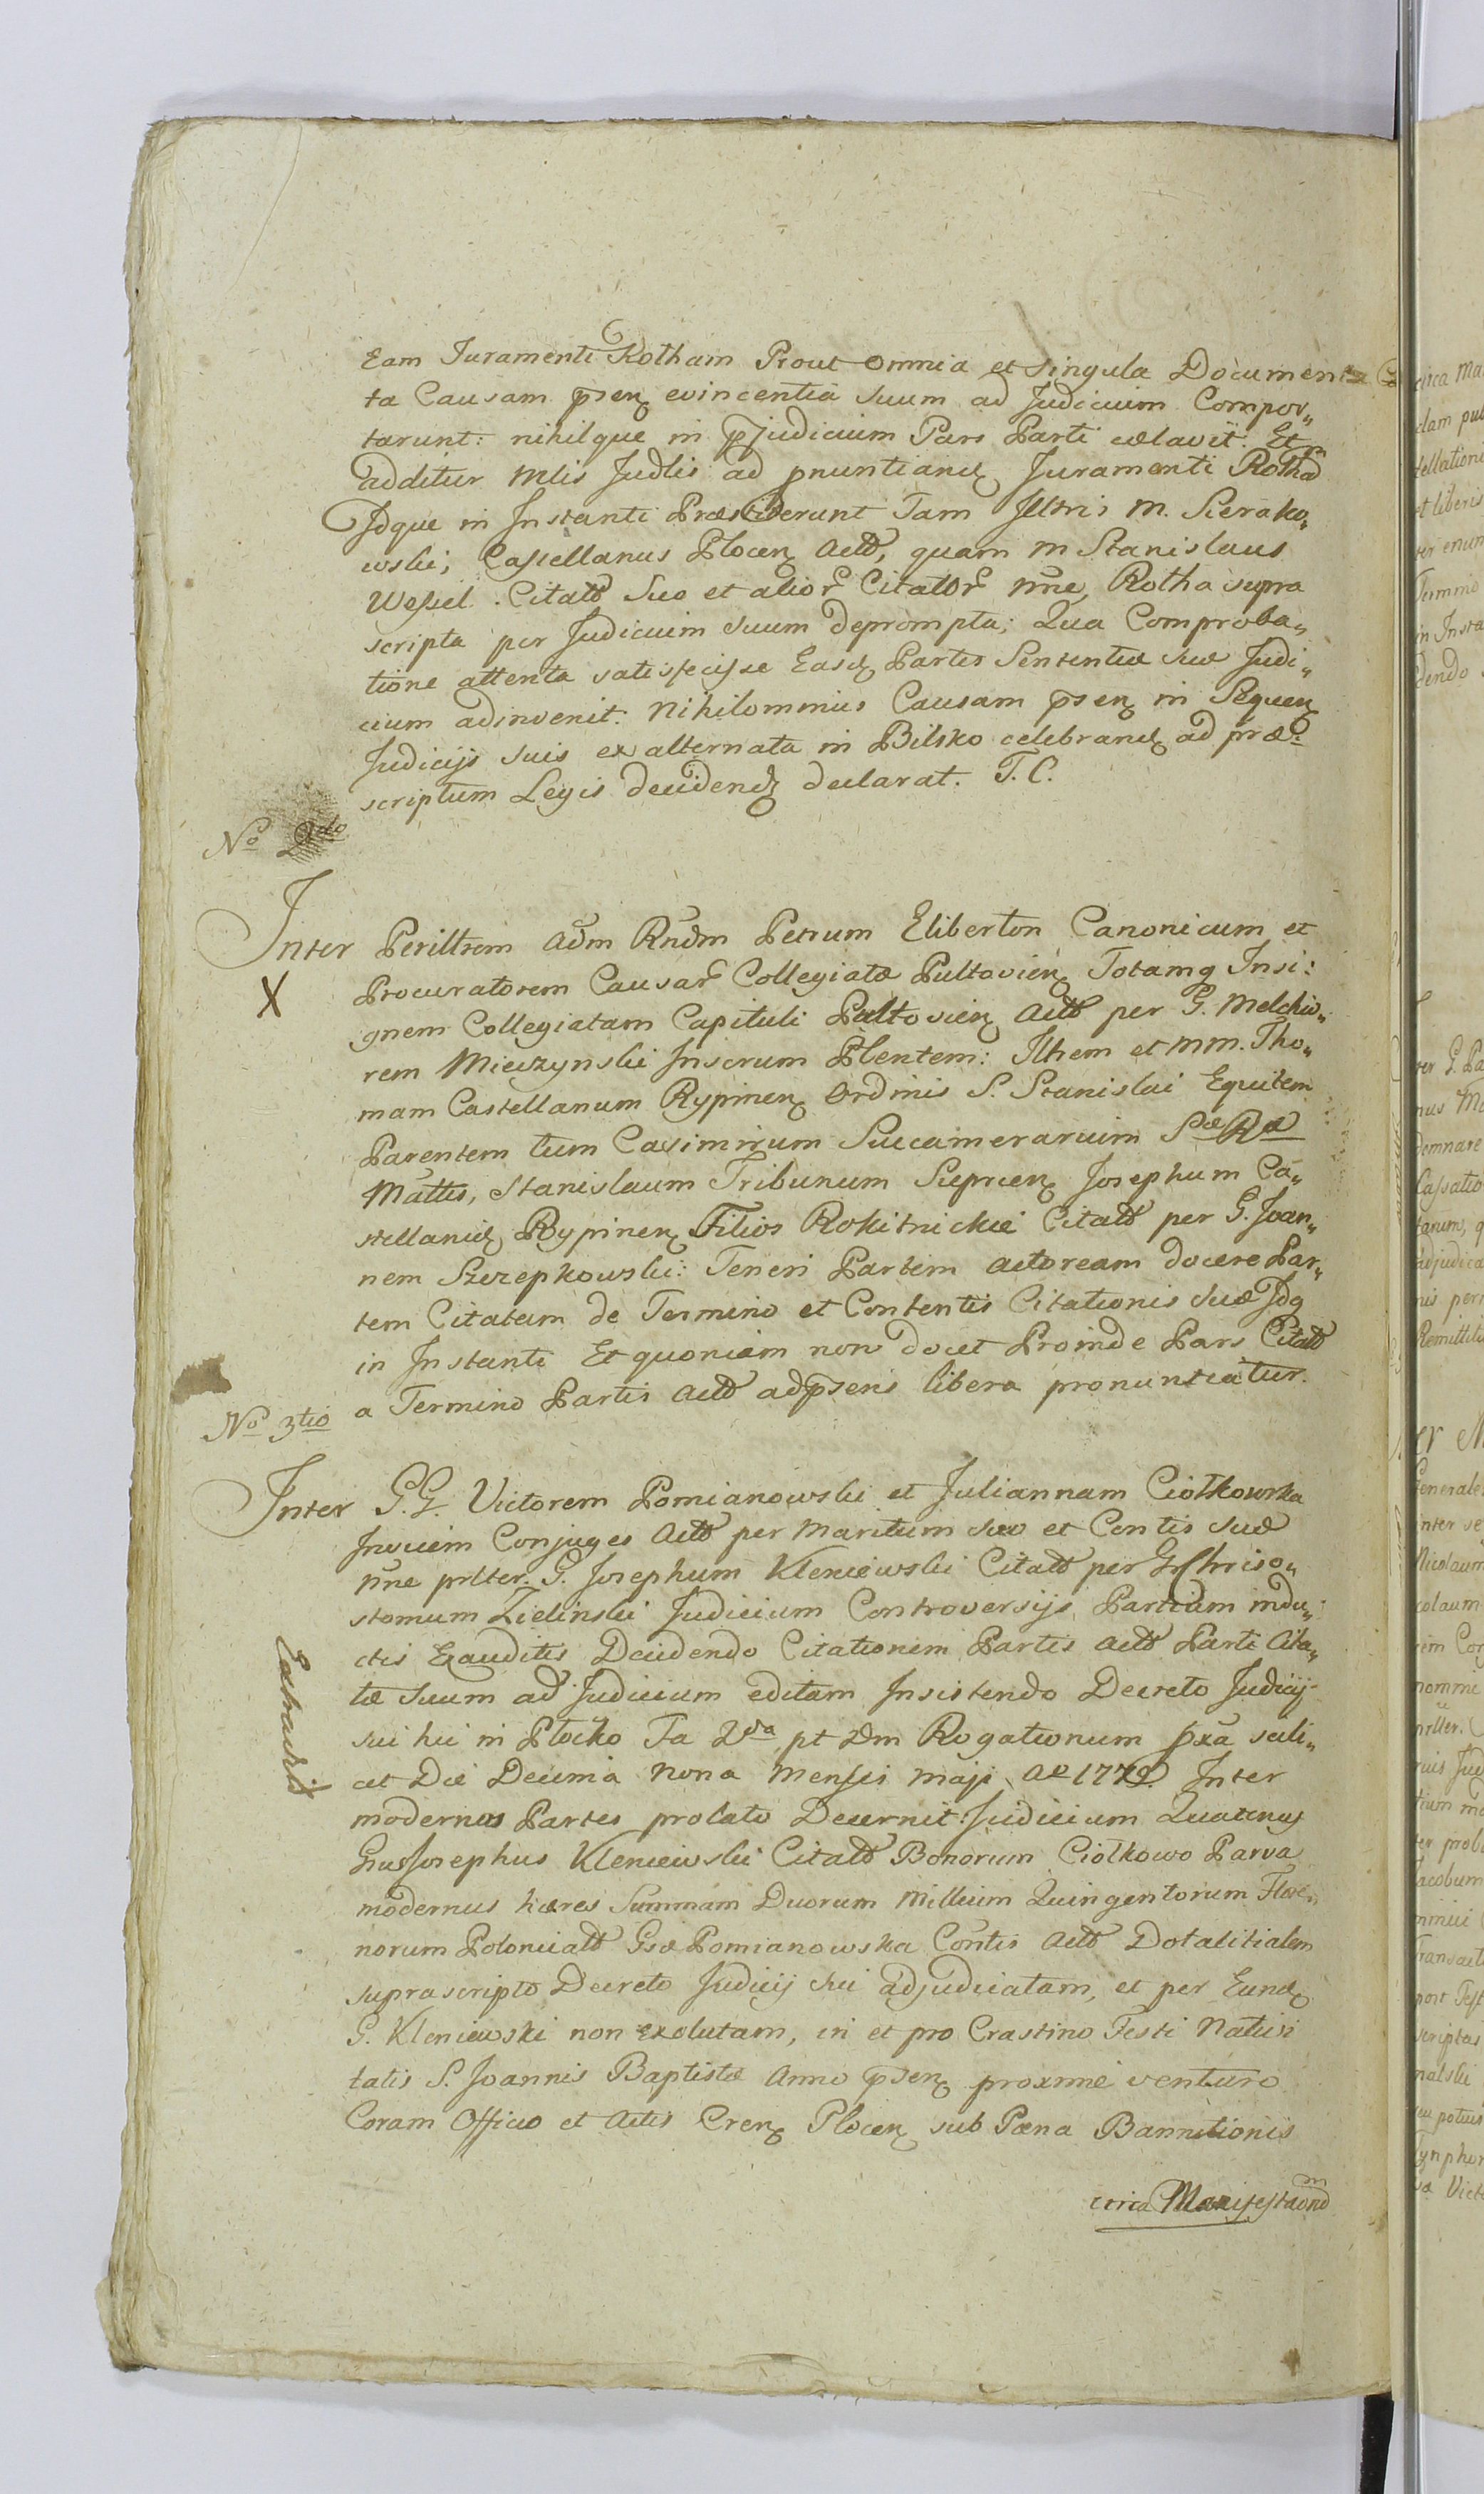 Eam Juramenti Rotham Prout omnia et singula Documen=
ta Causam p̄sen̄ evincentia suum ad Judicium Compor„
tarunt: nihilque in p̄judicium Pars Parti celavit. Et
additur Mlis Judlis ad p̄nuntiand Juramenti Rotha
Idque in Instanti Præstiderunt Tam Illtris M. Sierako„
wski, Castellanus Plocen Actō, quam M Stanislaus
Wessel. Citatō Suo et alior Citator n̄ne, Rotha supra
scripta per Judicium Suum deprompta; Qua Comproba„
tione attenta satisfecisse Easd Partes Sententiæ suæ Judi„
cium adinvenit: Nihilominus Causam p̄sen in Sequen
Judicijs suis ex alternata in Bilsko celebrand ad præ=
scriptum Legis decidend declarat. T. C.
No 2do
Inter Perilltrem Adm Rndm Petrum Eliberton Canonicum et
X
Procuratorem Causar Collegiatæ Pultovien Totamq Insi:
gnem Collegiatam Capituli Pultovien Actō per G. Melchio„
rem Mieczynski Inscrum Plentem: Illtrem et MM. Tho„
mam Castellanum Rypinen Ordinis S. Stanislai Equitem
Parentem tum Casimirum Succamerarium Sæ Ræ
Mattis, Stanislaum Tribunum Sieprcen Josephum Ca„
stellanid Rypinen Filios Rokitnickie Citatō per G. Joan„
nem Szczepkowski: Teneri Partem actoream docere Par„
tem Citatam de Termino et Contentis Citationis Suæ Idq
in Instanti Et quoniam non docet Proinde Pars Citatō
a Termino Partis Actō adp̄sens libera pronuntiatur.
No 3tio
Inter G.G. Victorem Pomianowski et Juliannam Ciołkowska
Invicem Conjuges Actō per Maritum suo et Contis suæ
n̄ne prltter. G. Josephum Kleniewski Citatō per G. Chriso„
stomum Zielinski Judicium Controversijs Partium indu„
ctis Exauditis Decidendo Citationem Partis Actō Parti Cita„
tæ Suum ad Judicium editam Insistendo Decreto Judicij
Extradit
sui hic in Płocko Fa 2da pt Dm Rogationum p̄xa scili„
cet Die Decima Nona Mensis Maji Ao 177 Inter
modernas Partes prolato Decernit Judicium Quatenus
Grus Josephus Kleniewski Citatō Bonorum Ciołkowo Parva
modernus hæres Summam Duorum Millium Quingentorum Flore„
norum Polonicatō Gsæ Pomianowska Contis Actō Dotalitialem
suprascripto Decreto Judicij sui adjudicatam, et per Eund
G. Kleniewski non exolutam, in et pro Crastino Festi Nativi
tatis S. Joannis Baptistæ Anno p̄sen proxime venturo
Coram Officio et Actis Cren Plocen sub Pœna Bannitionis
circa Manifestaōnō